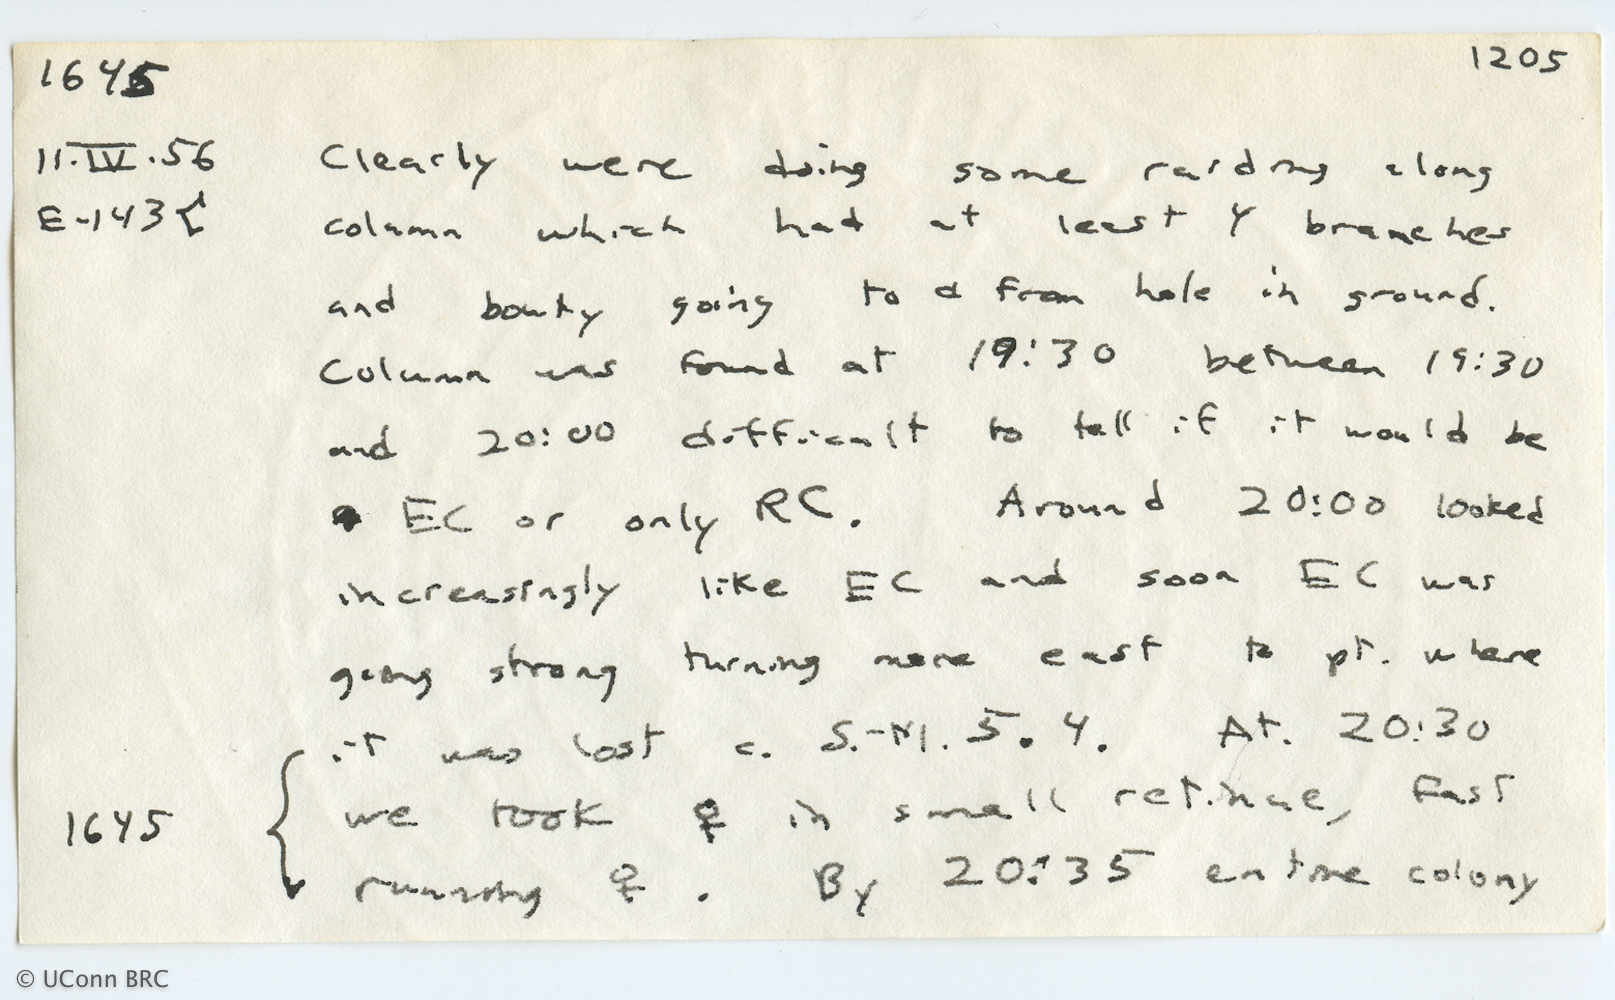 1645 1205
11.IV.56 Clearly were doing some raiding along
E-143 column which had at least 4 branches
and booty going to & from hole in ground.
Column was found at 19:30 between 19:30
and 20:00 difficult to tell if it would be
EC or only RC. Around 20:00 looked
increasingly like EC and soon EC was
going strong turning more east to pt. where
it was lost c. S.-M. 5.4. At. 20:30
1645 we took ♀ in small retinue, fast
running ♀. By 20:35 entire colony
© UConn BRC